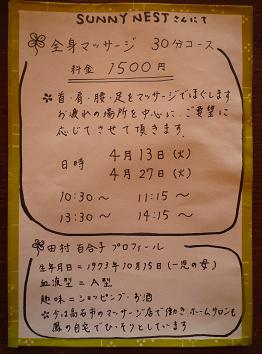 SUNNY NESTさんにて
全身マッサージ 30分コース
料金 1500円
首・肩・腰・足をマッサージでほぐします
お疲れの場所を中心に ご要望に
応じてさせて頂きます.
日時 4月13日(火)
4月27日(火)
10:30〜 11:15〜
13:30〜 14:15〜
田村 百合子 プロフィール
生年月日=1973年10月15日(一児の母)
血液型=A型
趣味=ショッピング・お酒
今は高石市のマッサージ店で働き ホームサロンも
鳳の自宅でひっそりとしています